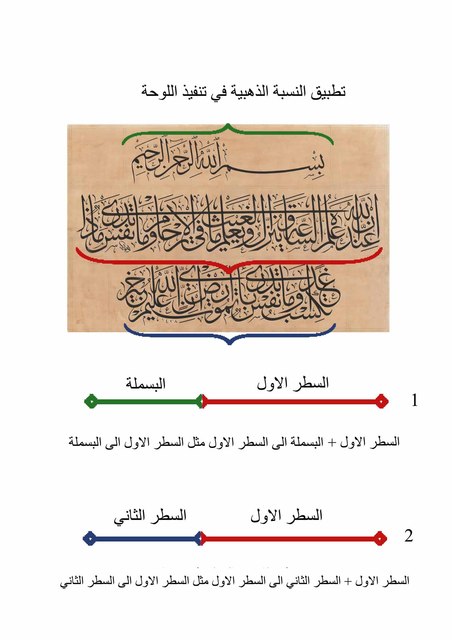 تطبيق النسبة الذهبية في تنفيذ اللوحة
بسم الله الرحمن الرحيم
ان الله عنده علم الساعة وينزل الغيث ويعلم ما في الارحام وما تدري نفس ماذا
تكسب غدا وما تدري نفس باي ارض تموت ان الله عليم خبير
السطر الاول البسملة
1
السطر الاول + البسملة الى السطر الاول مثل السطر الاول الى البسملة
السطر الاول السطر الثاني
2
السطر الاول + السطر الثاني الى السطر الاول مثل السطر الاول الى السطر الثاني